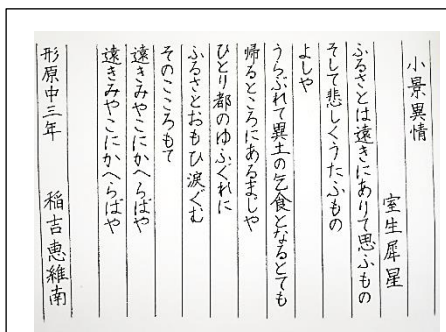 小景異情
室生犀星
ふるさとは遠きにありて思ふもの
そして悲しくうたふもの
よしや
うらぶれて異土の乞食となるとても
帰るところにあるまじや
ひとり都のゆふぐれに
ふるさとおもひ涙ぐむ
そのこころもて
遠きみやこにかへらばや
遠きみやこにかへらばや
形原中三年 稲吉恵維南